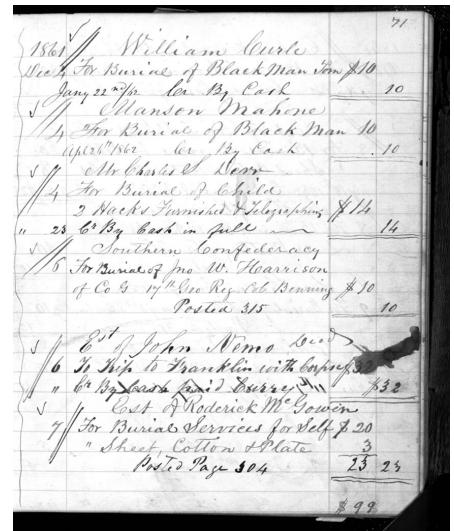 71
1861 William Curle
Dec 4 For Burial of Black Man Tom $10
Jany 22nd/62 Cr By Cash 10
Manson Mahone
4 For Burial of Black Man 10
Apl 26th 1862 Cr By Cash 10
Mr Charles S
4 For Burial of Child
2 Hacks Furnished & Telegraphing $14
" 23 Cr By Cash in full 14
Southern Confederacy
6 For Burial of Jno W. Harrison
of Co G 17th Geo Reg Col Benning $10
Posted 315 10
Est of John Nemo Dead
6 To Trip to Franklin with Corpse $32
" Cr By Cash paid $32
Est of Roderick McGowin
7 For Burial Services for Self $20
" Sheet, Cotton & Plate 3
Posted Page 304 23 23
$99